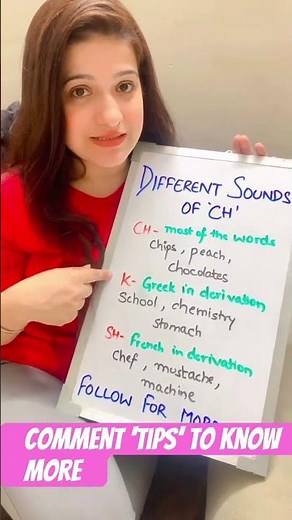 DIFFERENT SOUNDS
OF 'CH'
CH- most of the words
Chips, peach,
chocolates
K- Greek in derivation
School, chemistry
stomach
SH- French in derivation
chef, mustache,
machine
FOLLOW FOR MORE
COMMENT 'TIPS' TO KNOW
MORE